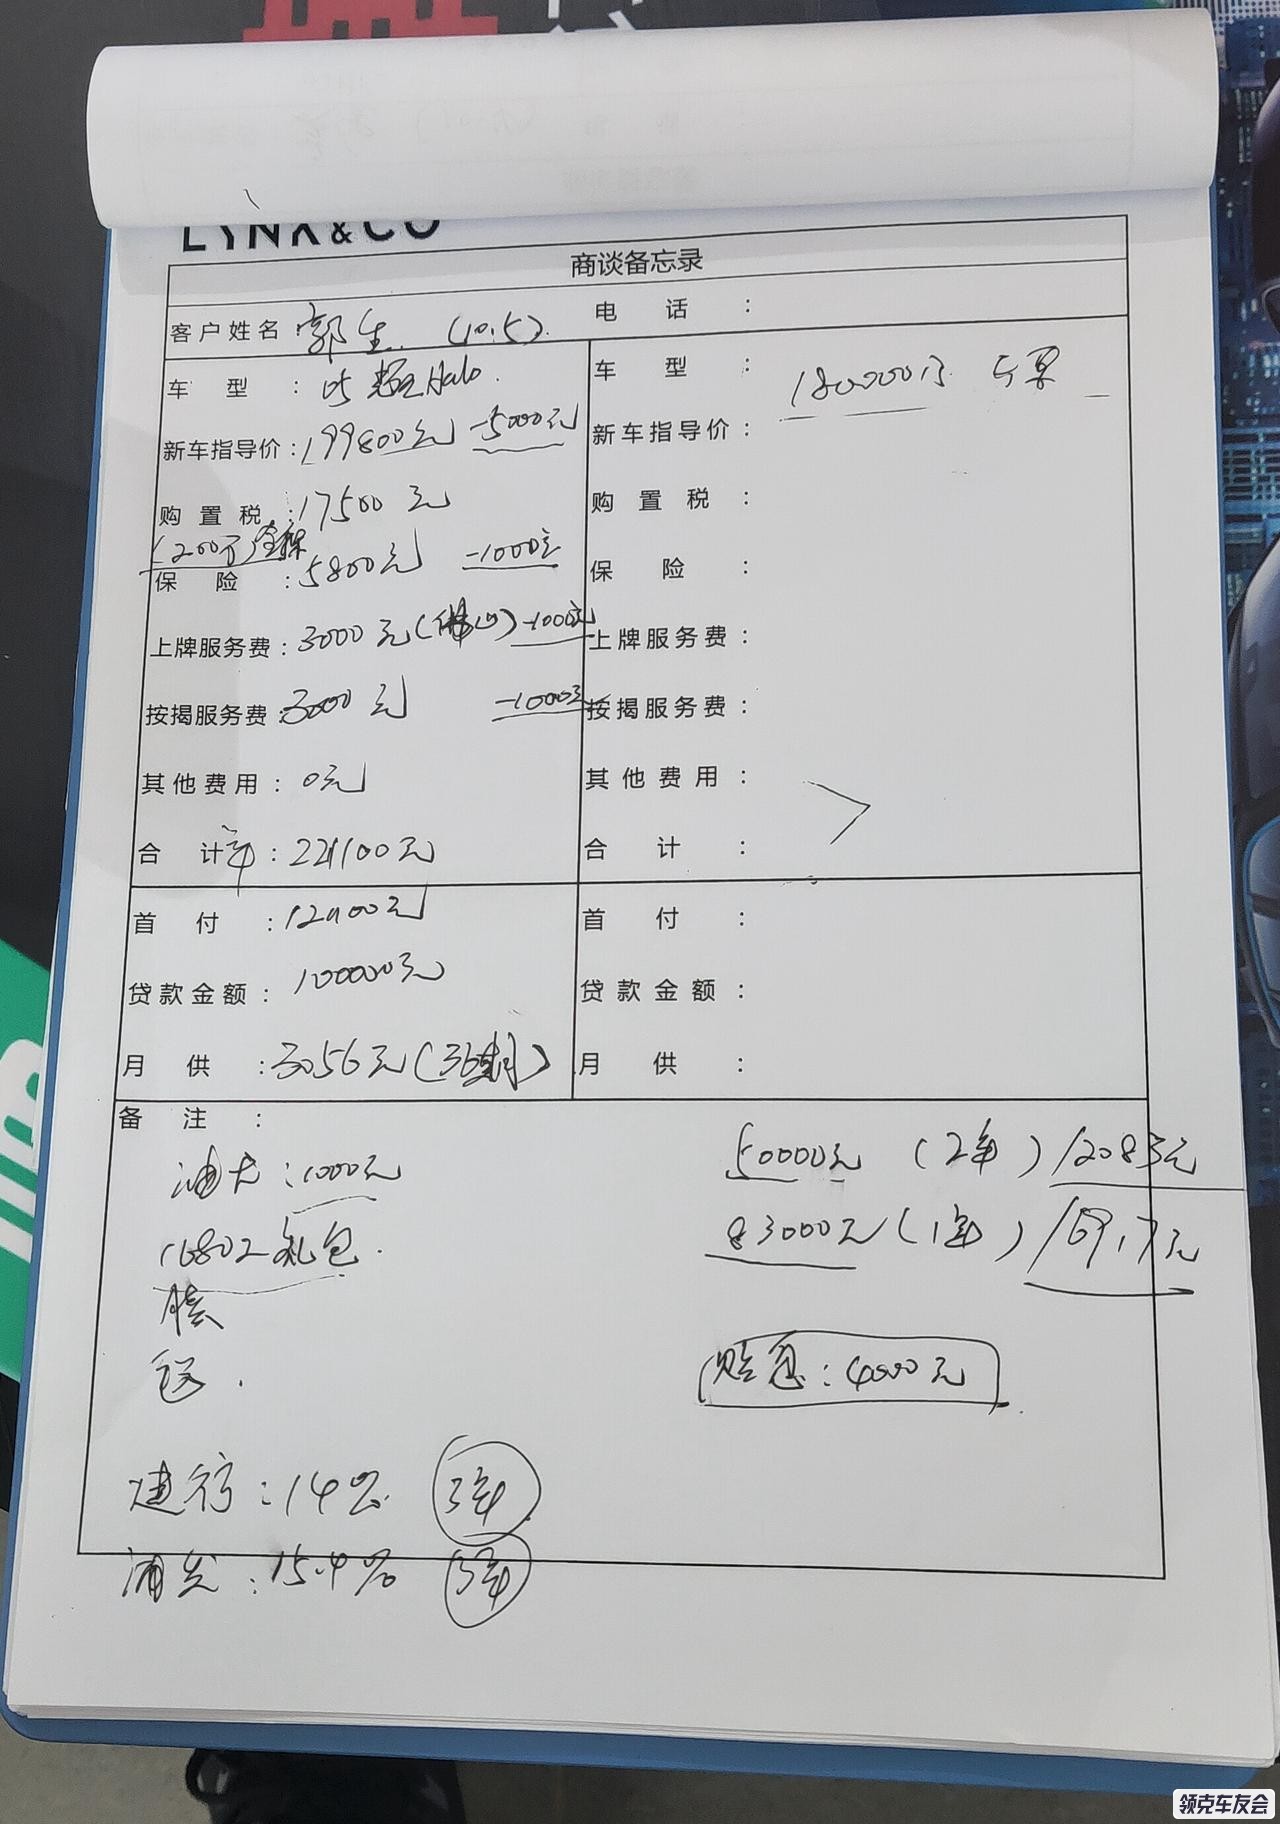 LYNK&CO
商谈备忘录
客户姓名 郭生 (10.5).
电 话 ：
车 型 ： 05 Halo.
新车指导价：199800元 -5000元
购 置 税 ：17500 元
(200万
保 险 ：5800元 -1000元
上牌服务费：3000 元(佛山) -1000元
按揭服务费：3000 元 -1000元
其他费用：0元
合 计 ：221100元
首 付 ：121100元
贷款金额：100000元
月 供 ：3056元(36期)
车 型 ： 180000 发票
新车指导价：
购 置 税 ：
保 险 ：
上牌服务费：
按揭服务费：
其他费用：
合 计 ：
首 付 ：
贷款金额：
月 供 ：
备 注 ：
油卡：1000元
礼包.
膜
50000元 (2年) /2083元
83000元 (1年) /6917元
贴息：4000元
建行：14% 3年
浦发：15.4% 3年
领克车友会